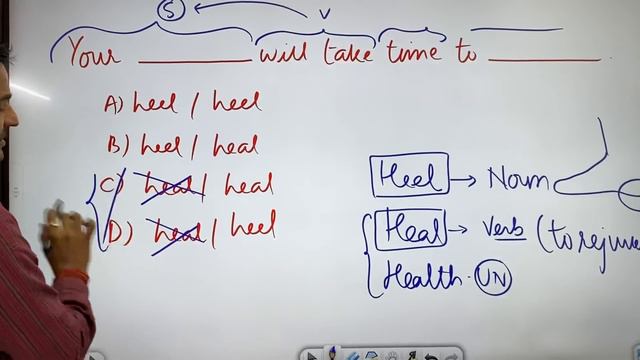 S V
Your ________ will take time to ________.
A) heel / heel
B) heel / heal
C) heal / heal
D) heal / heel
Heel → Noun
Heal → Verb (to rejuve
Health. UN